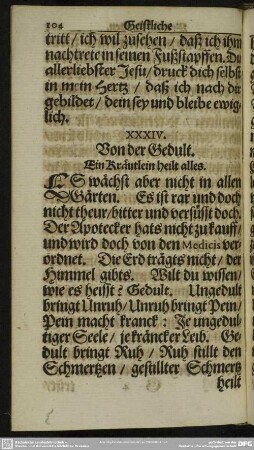 104 Geistliche
tritt / ich wil zusehen / daß ich ihm
nachtrete in seinen Fußstapffen. Du
allerliebster Jesu / druck dich selbst
in mein Hertz / daß ich nach dir
gebildet / dein sey und bleibe ewig-
lich.
XXXIV.
Von der Gedult.
Ein Kräutlein heilt alles.
ES wächst aber nicht in allen
Gärten. Es ist rar und doch
nicht theur / bitter und versüsst doch.
Der Apotecker hats nicht zu kauff /
und wird doch von den Medicis ver-
ordnet. Die Erd trägts nicht / der
Himmel gibts. Wilt du wissen /
wie es heisst? Gedult. Ungedult
bringt Unruh / Unruh bringt Pein /
Pein macht kranck: Je ungedul-
tiger Seele / je kräncker Leib. Ge-
dult bringt Ruh / Ruh stillt den
Schmertzen / gestillter Schmertz
heilt